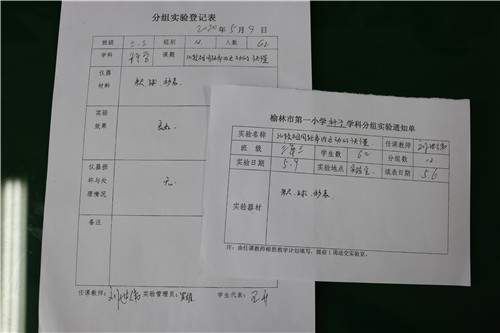 分组实验登记表
2020年5月9日
班级 三.三 组别 12 人数 62
学科 科学 课题 比较相同时间内运动的快慢
仪器材料 尺.球.秒表
实验效果 良好
仪器损坏与处理情况 无
备注
任课教师: 实验管理员: 学生代表:
榆林市第一小学 科学 学科分组实验通知单
实验名称 比较相同时间内运动的快慢 任课教师
班级 三年三 学生数 62 分组数 12
实验日期 5.9 实验地点 实验室 填表日期 5.6
实验器材 尺.球.秒表
注:由任课教师根据教学计划填写,提前1周送交实验室。